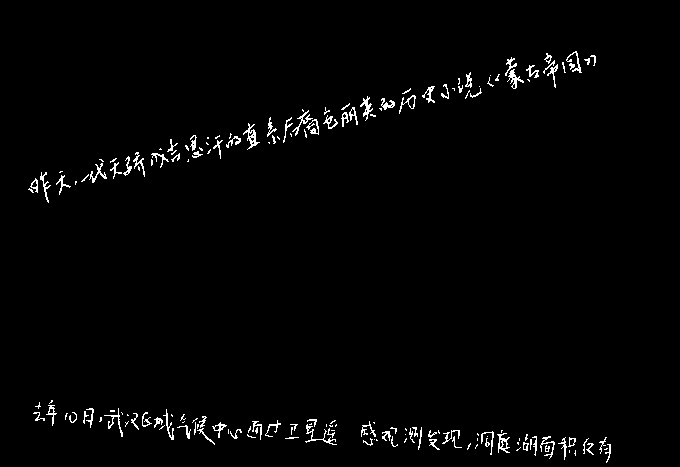 昨天,一代天骄成吉思汗的直系后裔包丽英的历史小说《蒙古帝国》
去年10月,武汉区域气候中心通过卫星遥感观测发现,洞庭湖面积仅有